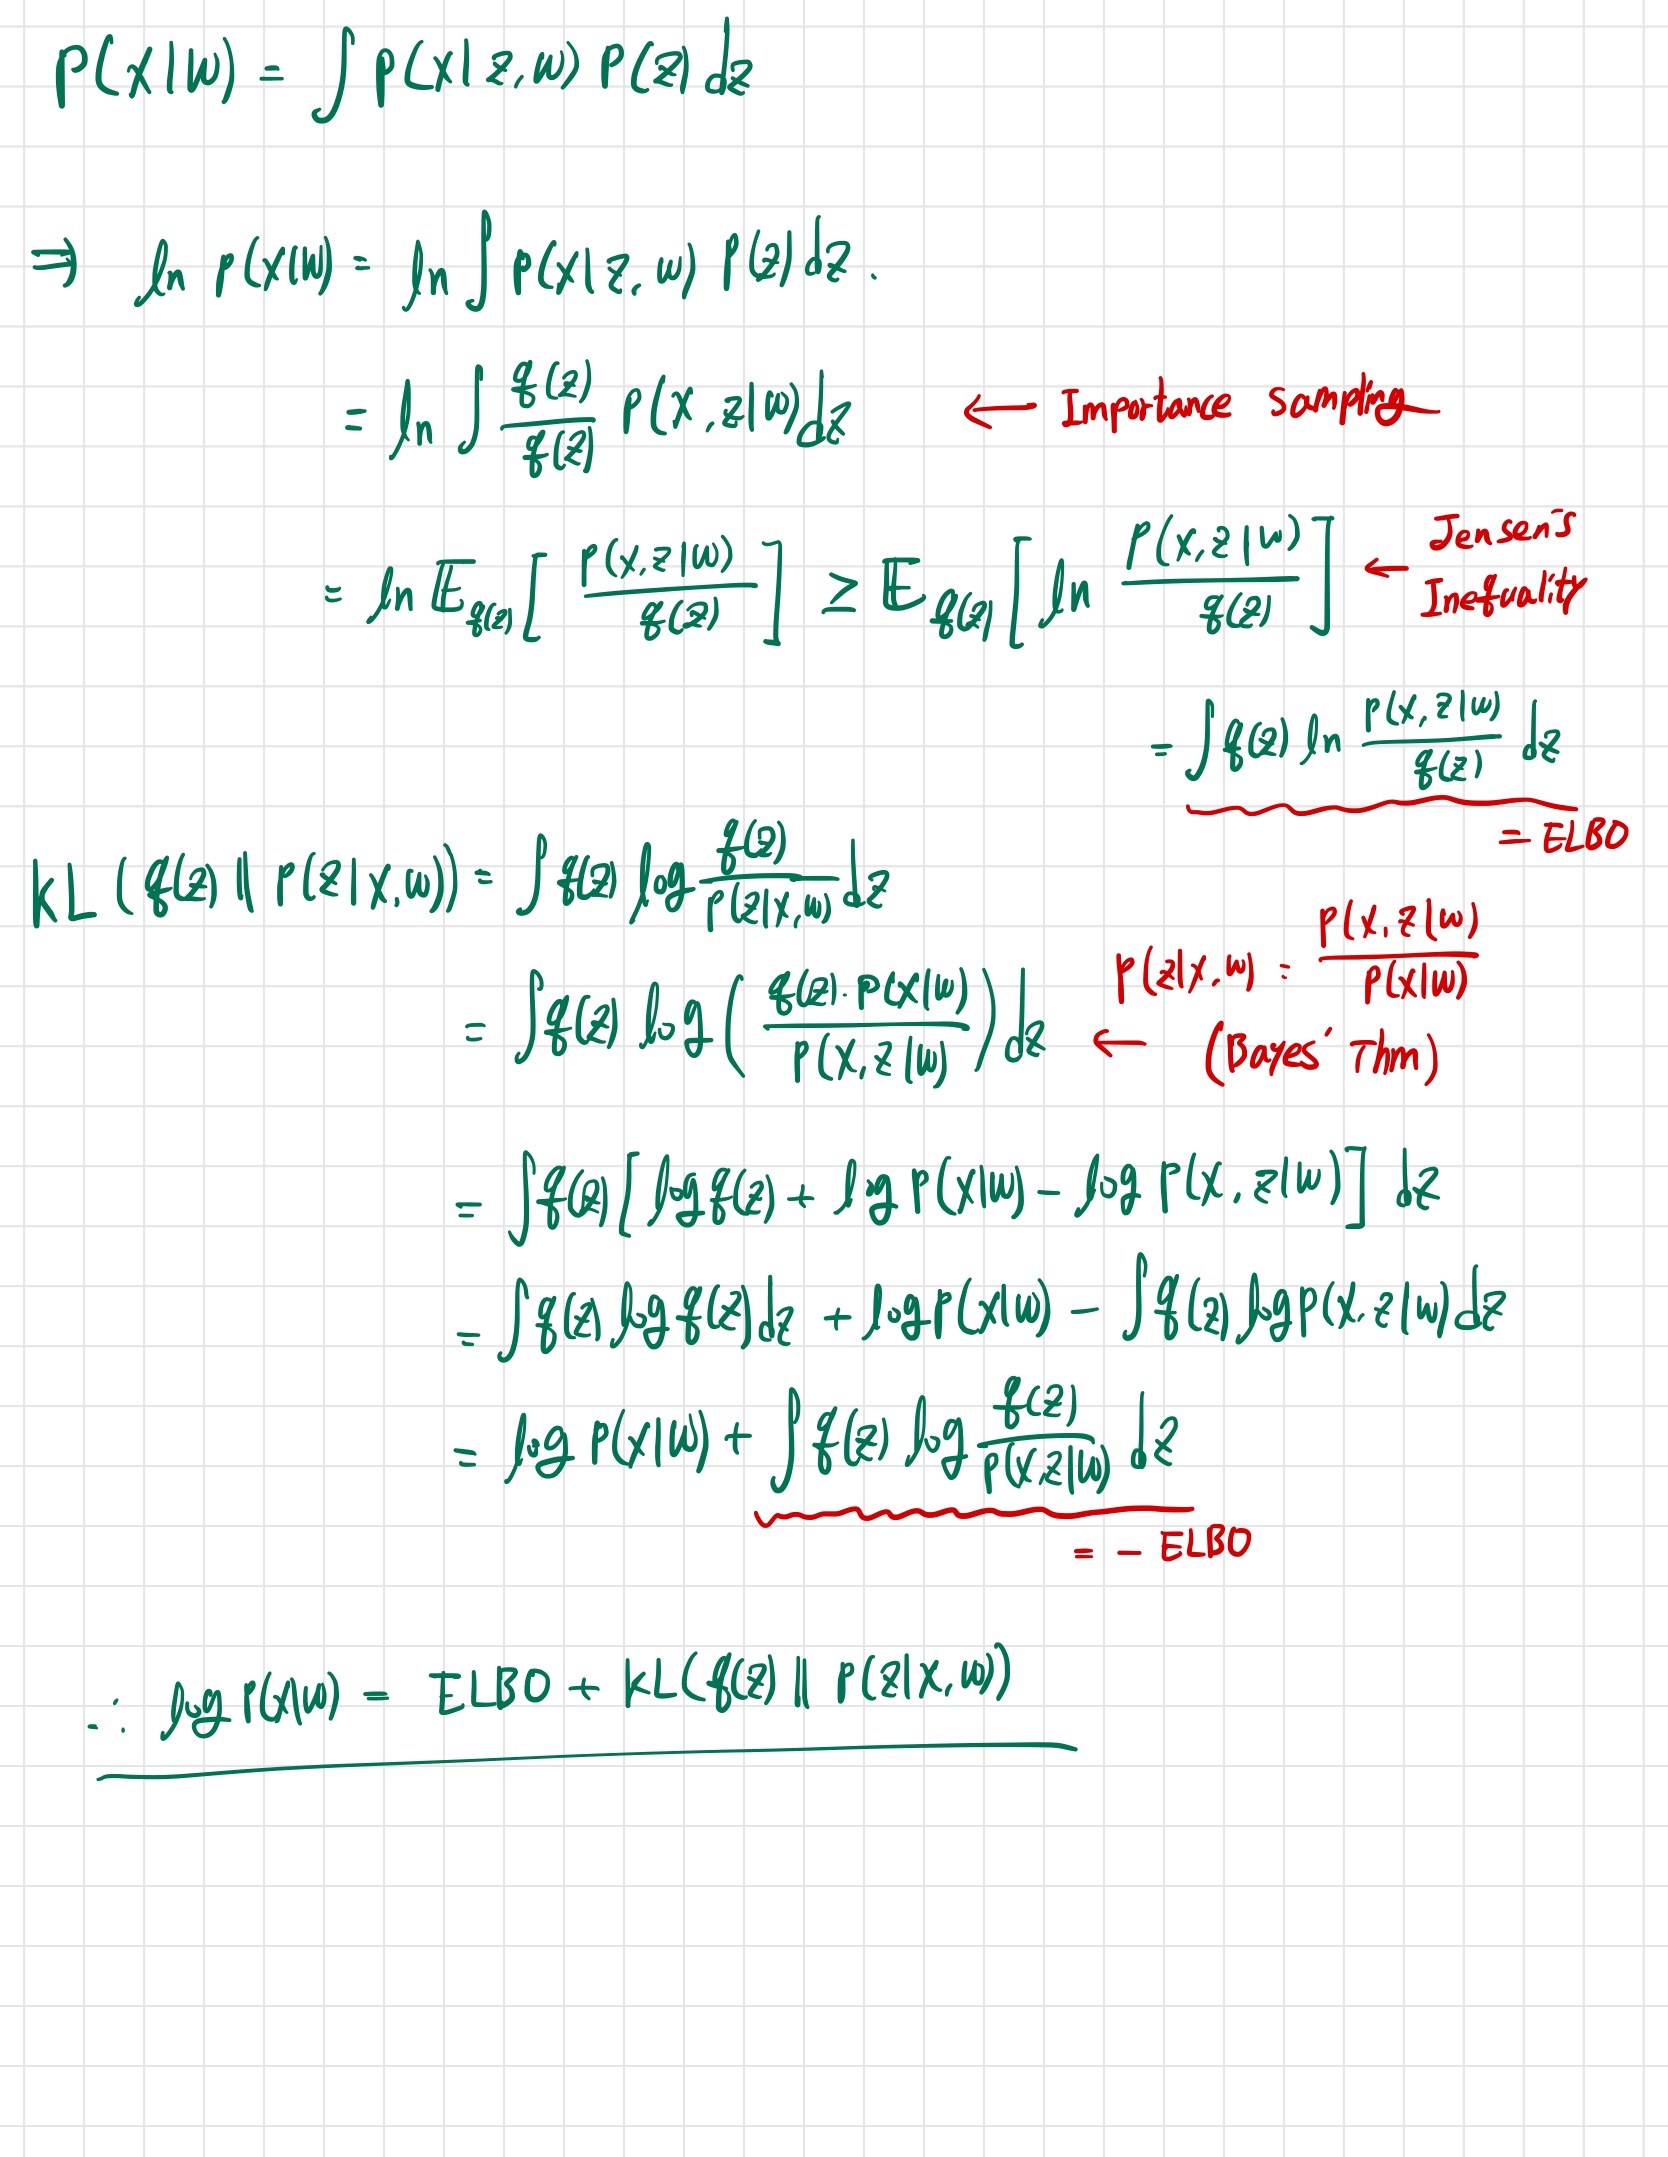 P(x|w) = ∫ p(x|z,w) P(z) dz
⇒ ln p(x|w) = ln ∫ p(x|z,w) P(z) dz.
= ln ∫ q(z)/q(z) P(x,z|w) dz ← Importance sampling
= ln 𝔼_q(z) [ P(x,z|w) / q(z) ] ≥ 𝔼_q(z) [ ln P(x,z|w) / q(z) ] ← Jensen's Inequality
= ∫ q(z) ln P(x,z|w) / q(z) dz
= ELBO
KL (q(z) || P(z|x,w)) = ∫ q(z) log q(z) / P(z|x,w) dz
P(z|x,w) = P(x,z|w) / P(x|w)
= ∫ q(z) log ( q(z)·P(x|w) / P(x,z|w) ) dz ← (Bayes' Thm)
= ∫ q(z) [ log q(z) + log P(x|w) − log P(x,z|w) ] dz
= ∫ q(z) log q(z) dz + log P(x|w) − ∫ q(z) log P(x,z|w) dz
= log P(x|w) + ∫ q(z) log q(z) / P(x,z|w) dz
= − ELBO
∴ log P(x|w) = ELBO + KL(q(z) || P(z|x,w))